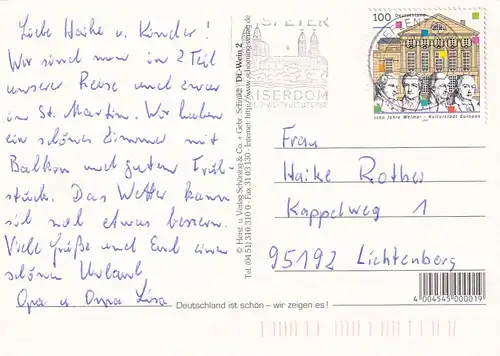 Liebe Haike u. Kinder!
Wir sind nun in 2 Teil
unserer Reise und zwar
in St. Martin. Wir haben
ein schönes Zimmer mit
Balkon und gutem Früh-
stück. Das Wetter kann
sich noch etwas bessern.
Viele Grüße und Euch einen
schönen Urlaub
Opa u. Oma Lisa
© Horst u. Verlag Schöning & Co. + Gebr. Schmidt / DL-Wein 2
Tel. (04 51) 310 310 0 · Fax 31 03 130 · Internet: http://www.schoening-verlag.de
SPEYER
KAISERDOM
100 Deutschland
1100 Jahre Weimar – Kulturstadt Europas
Frau
Haike Rother
Kappelweg 1
95192 Lichtenberg
4 004545 000019
Deutschland ist schön – wir zeigen es!